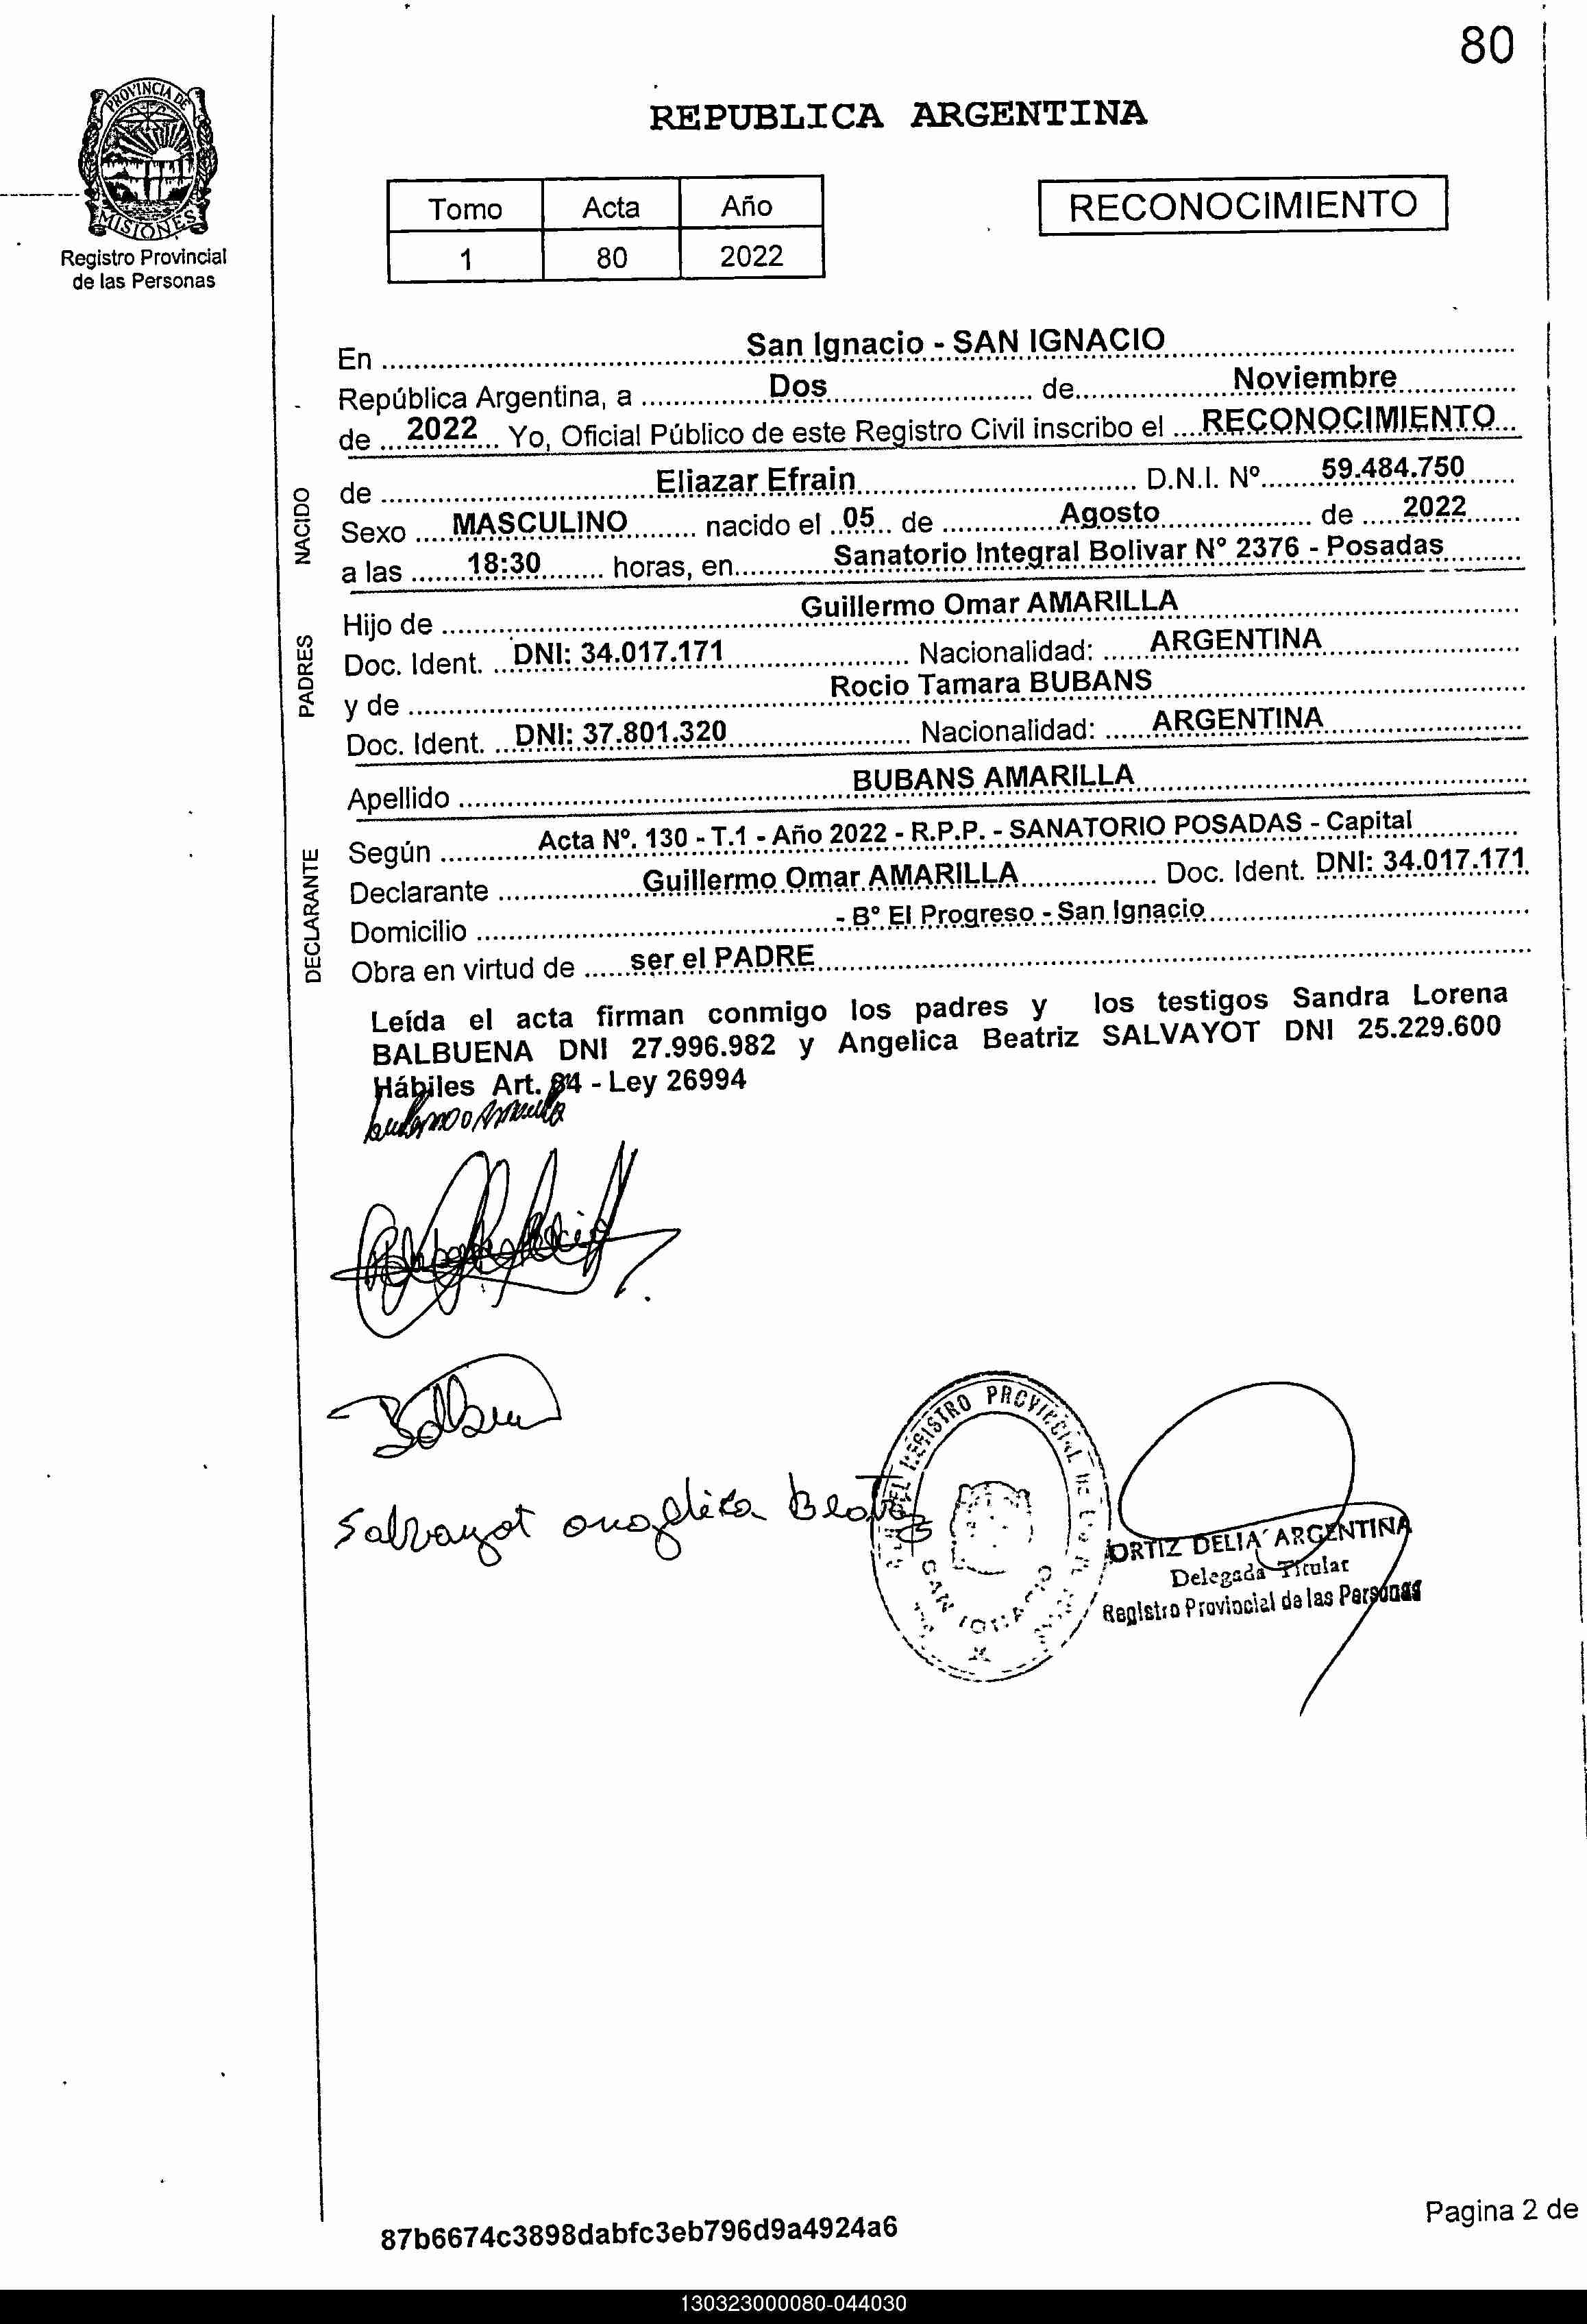 80
PROVINCIA DE
MISIONES
Registro Provincial
de las Personas
REPUBLICA ARGENTINA
Tomo Acta Año
1 80 2022
RECONOCIMIENTO
En San Ignacio - SAN IGNACIO
República Argentina, a Dos de Noviembre
de 2022 Yo, Oficial Público de este Registro Civil inscribo el RECONOCIMIENTO
NACIDO
de Eliazar Efrain D.N.I. Nº 59.484.750
Sexo MASCULINO nacido el 05 de Agosto de 2022
a las 18:30 horas, en Sanatorio Integral Bolivar Nº 2376 - Posadas
PADRES
Hijo de Guillermo Omar AMARILLA
Doc. Ident. DNI: 34.017.171 Nacionalidad: ARGENTINA
y de Rocio Tamara BUBANS
Doc. Ident. DNI: 37.801.320 Nacionalidad: ARGENTINA
Apellido BUBANS AMARILLA
DECLARANTE
Según Acta Nº. 130 - T.1 - Año 2022 - R.P.P. - SANATORIO POSADAS - Capital
Declarante Guillermo Omar AMARILLA Doc. Ident. DNI: 34.017.171
Domicilio - Bº El Progreso - San Ignacio
Obra en virtud de ser el PADRE
Leída el acta firman conmigo los padres y los testigos Sandra Lorena
BALBUENA DNI 27.996.982 y Angelica Beatriz SALVAYOT DNI 25.229.600
Hábiles Art. 84 - Ley 26994
Salvayot Angelica Beatriz
REGISTRO PROVINCIAL DE LAS
SAN IGNACIO
ORTIZ DELIA ARGENTINA
Delegada Titular
Registro Provincial de las Personas
87b6674c3898dabfc3eb796d9a4924a6
Pagina 2 de
130323000080-044030